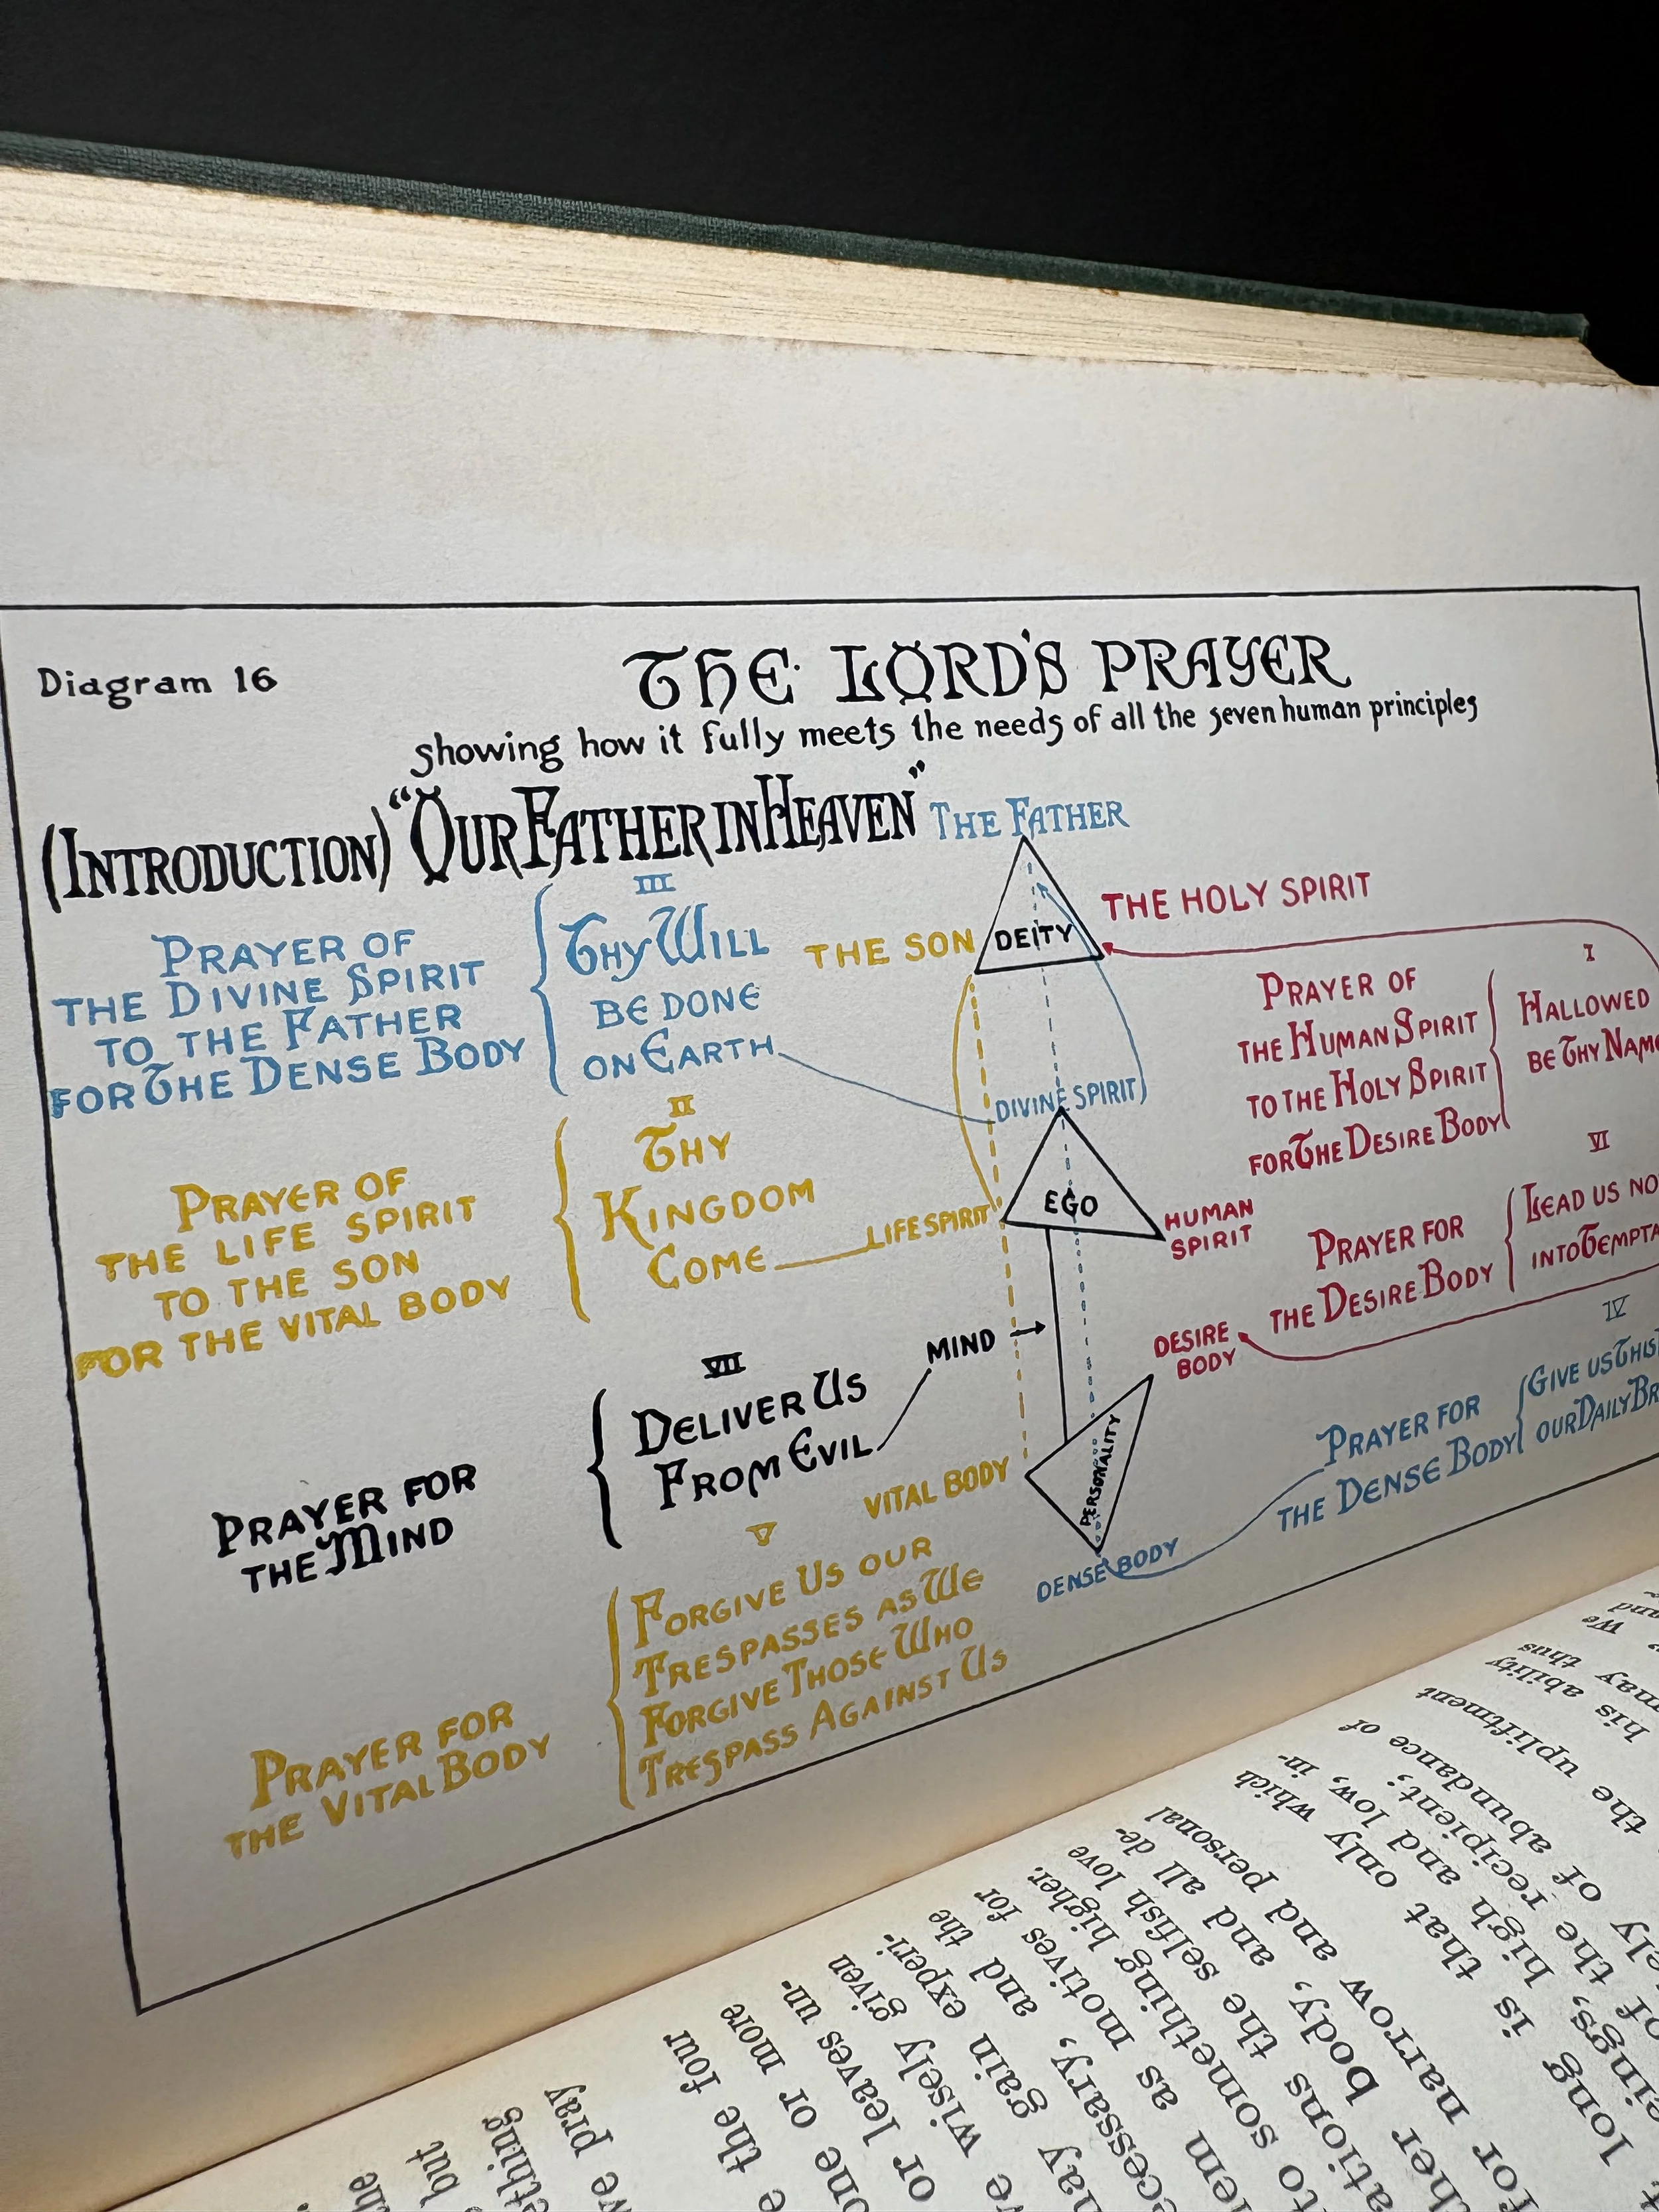 Diagram 16
THE LORD'S PRAYER
showing how it fully meets the needs of all the seven human principles
(INTRODUCTION) "OUR FATHER IN HEAVEN"
THE FATHER
III
PRAYER OF
THE DIVINE SPIRIT
TO THE FATHER
FOR THE DENSE BODY
THY WILL
BE DONE
ON EARTH
THE SON
DEITY
THE HOLY SPIRIT
I
PRAYER OF
THE HUMAN SPIRIT
TO THE HOLY SPIRIT
FOR THE DESIRE BODY
HALLOWED
BE THY NAME
DIVINE SPIRIT
II
PRAYER OF
THE LIFE SPIRIT
TO THE SON
FOR THE VITAL BODY
THY
KINGDOM
COME
LIFE SPIRIT
EGO
HUMAN
SPIRIT
VI
PRAYER FOR
THE DESIRE BODY
LEAD US
INTO
DESIRE
BODY
MIND
VII
PRAYER FOR
THE MIND
DELIVER US
FROM EVIL
IV
PRAYER FOR
THE DENSE BODY
GIVE US THIS
OUR DAILY
VITAL BODY
PERSONALITY
DENSE BODY
V
PRAYER FOR
THE VITAL BODY
FORGIVE US OUR
TRESPASSES AS WE
FORGIVE THOSE WHO
TRESPASS AGAINST US
the four
one or more
or leaves un-
wisely given
gain experi-
and the
motives for
something higher.
the selfish love
body, and all de-
narrow and personal
long is that only which
high and low, in-
the recipient;
of abundance of
the upliftment
his ability
may thus
We
and
we pray
but
the